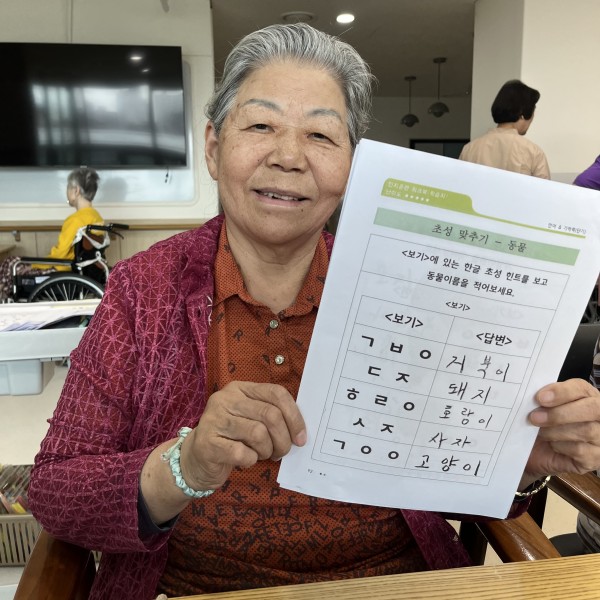 초성 맞추기 - 동물
<보기>에 있는 한글 초성 힌트를 보고
동물이름을 적어보세요.
<보기>
<보기> <답변>
ㄱㅂㅇ 거북이
ㄷㅈ 돼지
ㅎㄹㅇ 호랑이
ㅅㅈ 사자
ㄱㅇㅇ 고양이